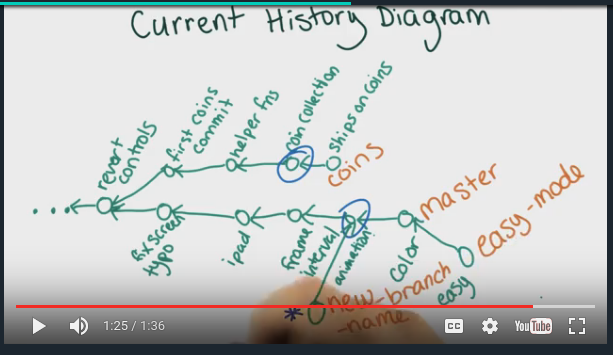 Current History Diagram
revert
controls
first coins
commit
helper fns
coin collection
ships on coins
coins
fix screen
typo
ipad
frame
interval
animation
color
master
easy
easy-mode
*
new_branch
-name
1:25 / 1:36
CC
YouTube